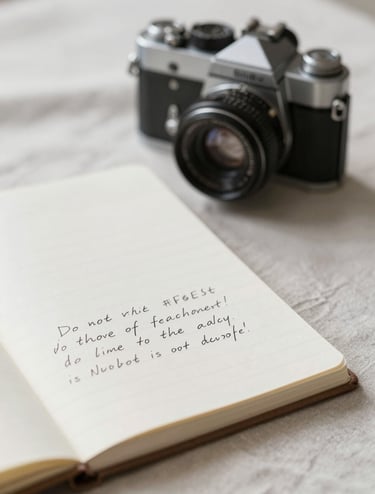 Do not vhit
do thove of feachonert!
do lime to the
is Nuobot is oot